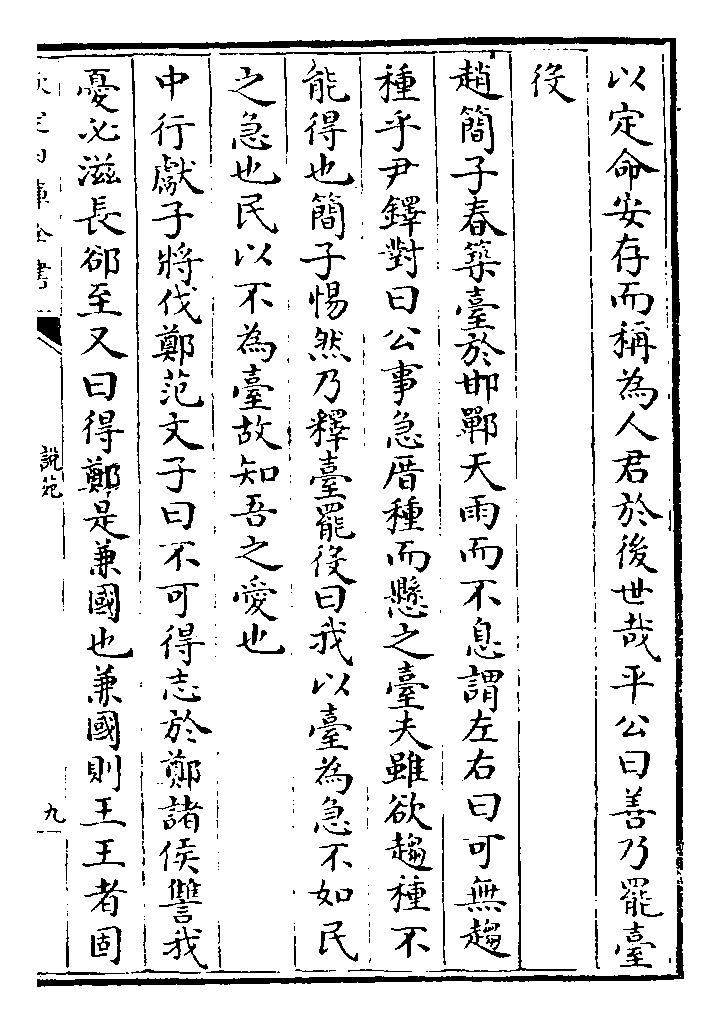 以定命安存而稱為人君於後世哉平公曰善乃罷臺
役
趙簡子春築臺於邯鄲天雨而不息謂左右曰可無趨
種乎尹鐸對曰公事急厝種而懸之臺夫雖欲趨種不
能得也簡子惕然乃釋臺罷役曰我以臺為急不如民
之急也民以不為臺故知吾之愛也
中行獻子將伐鄭范文子曰不可得志於鄭諸侯讐我
憂必滋長郤至又曰得鄭是兼國也兼國則王王者固
欽定四庫全書
說苑
九